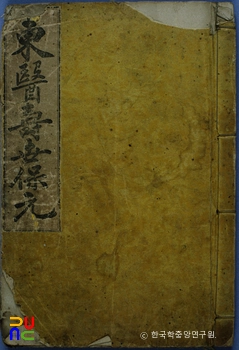 東醫壽世保元
© 한국학중앙연구원.